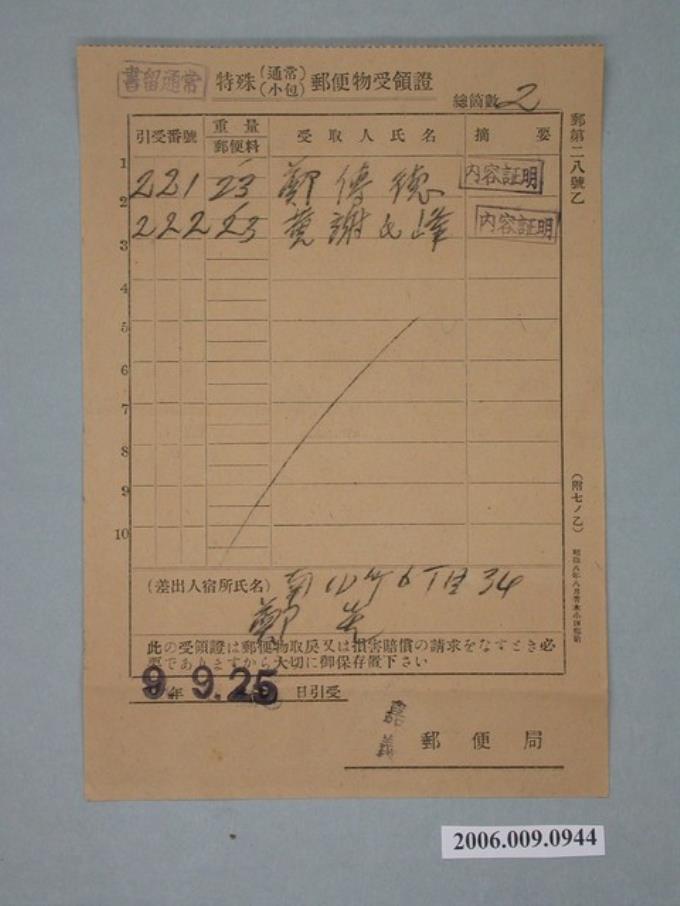 書留通常
特殊(通常 小包)郵便物受領證
總箇數 2
引受番號 重量 郵便料 受取人氏名 摘要
1 221 23 鄭傳德 内容証明
2 222 23 黄謝氏峰 内容証明
3
4
5
6
7
8
9
10
(差出人宿所氏名) 南門町6丁目34
鄭
此の受領證は郵便物取戻又は損害賠償の請求をなすとき必
要でありますから大切に御保存置下さい
9年 9.25 日引受
嘉義 郵便局
郵第二八號乙
(附七ノ乙)
2006.009.0944